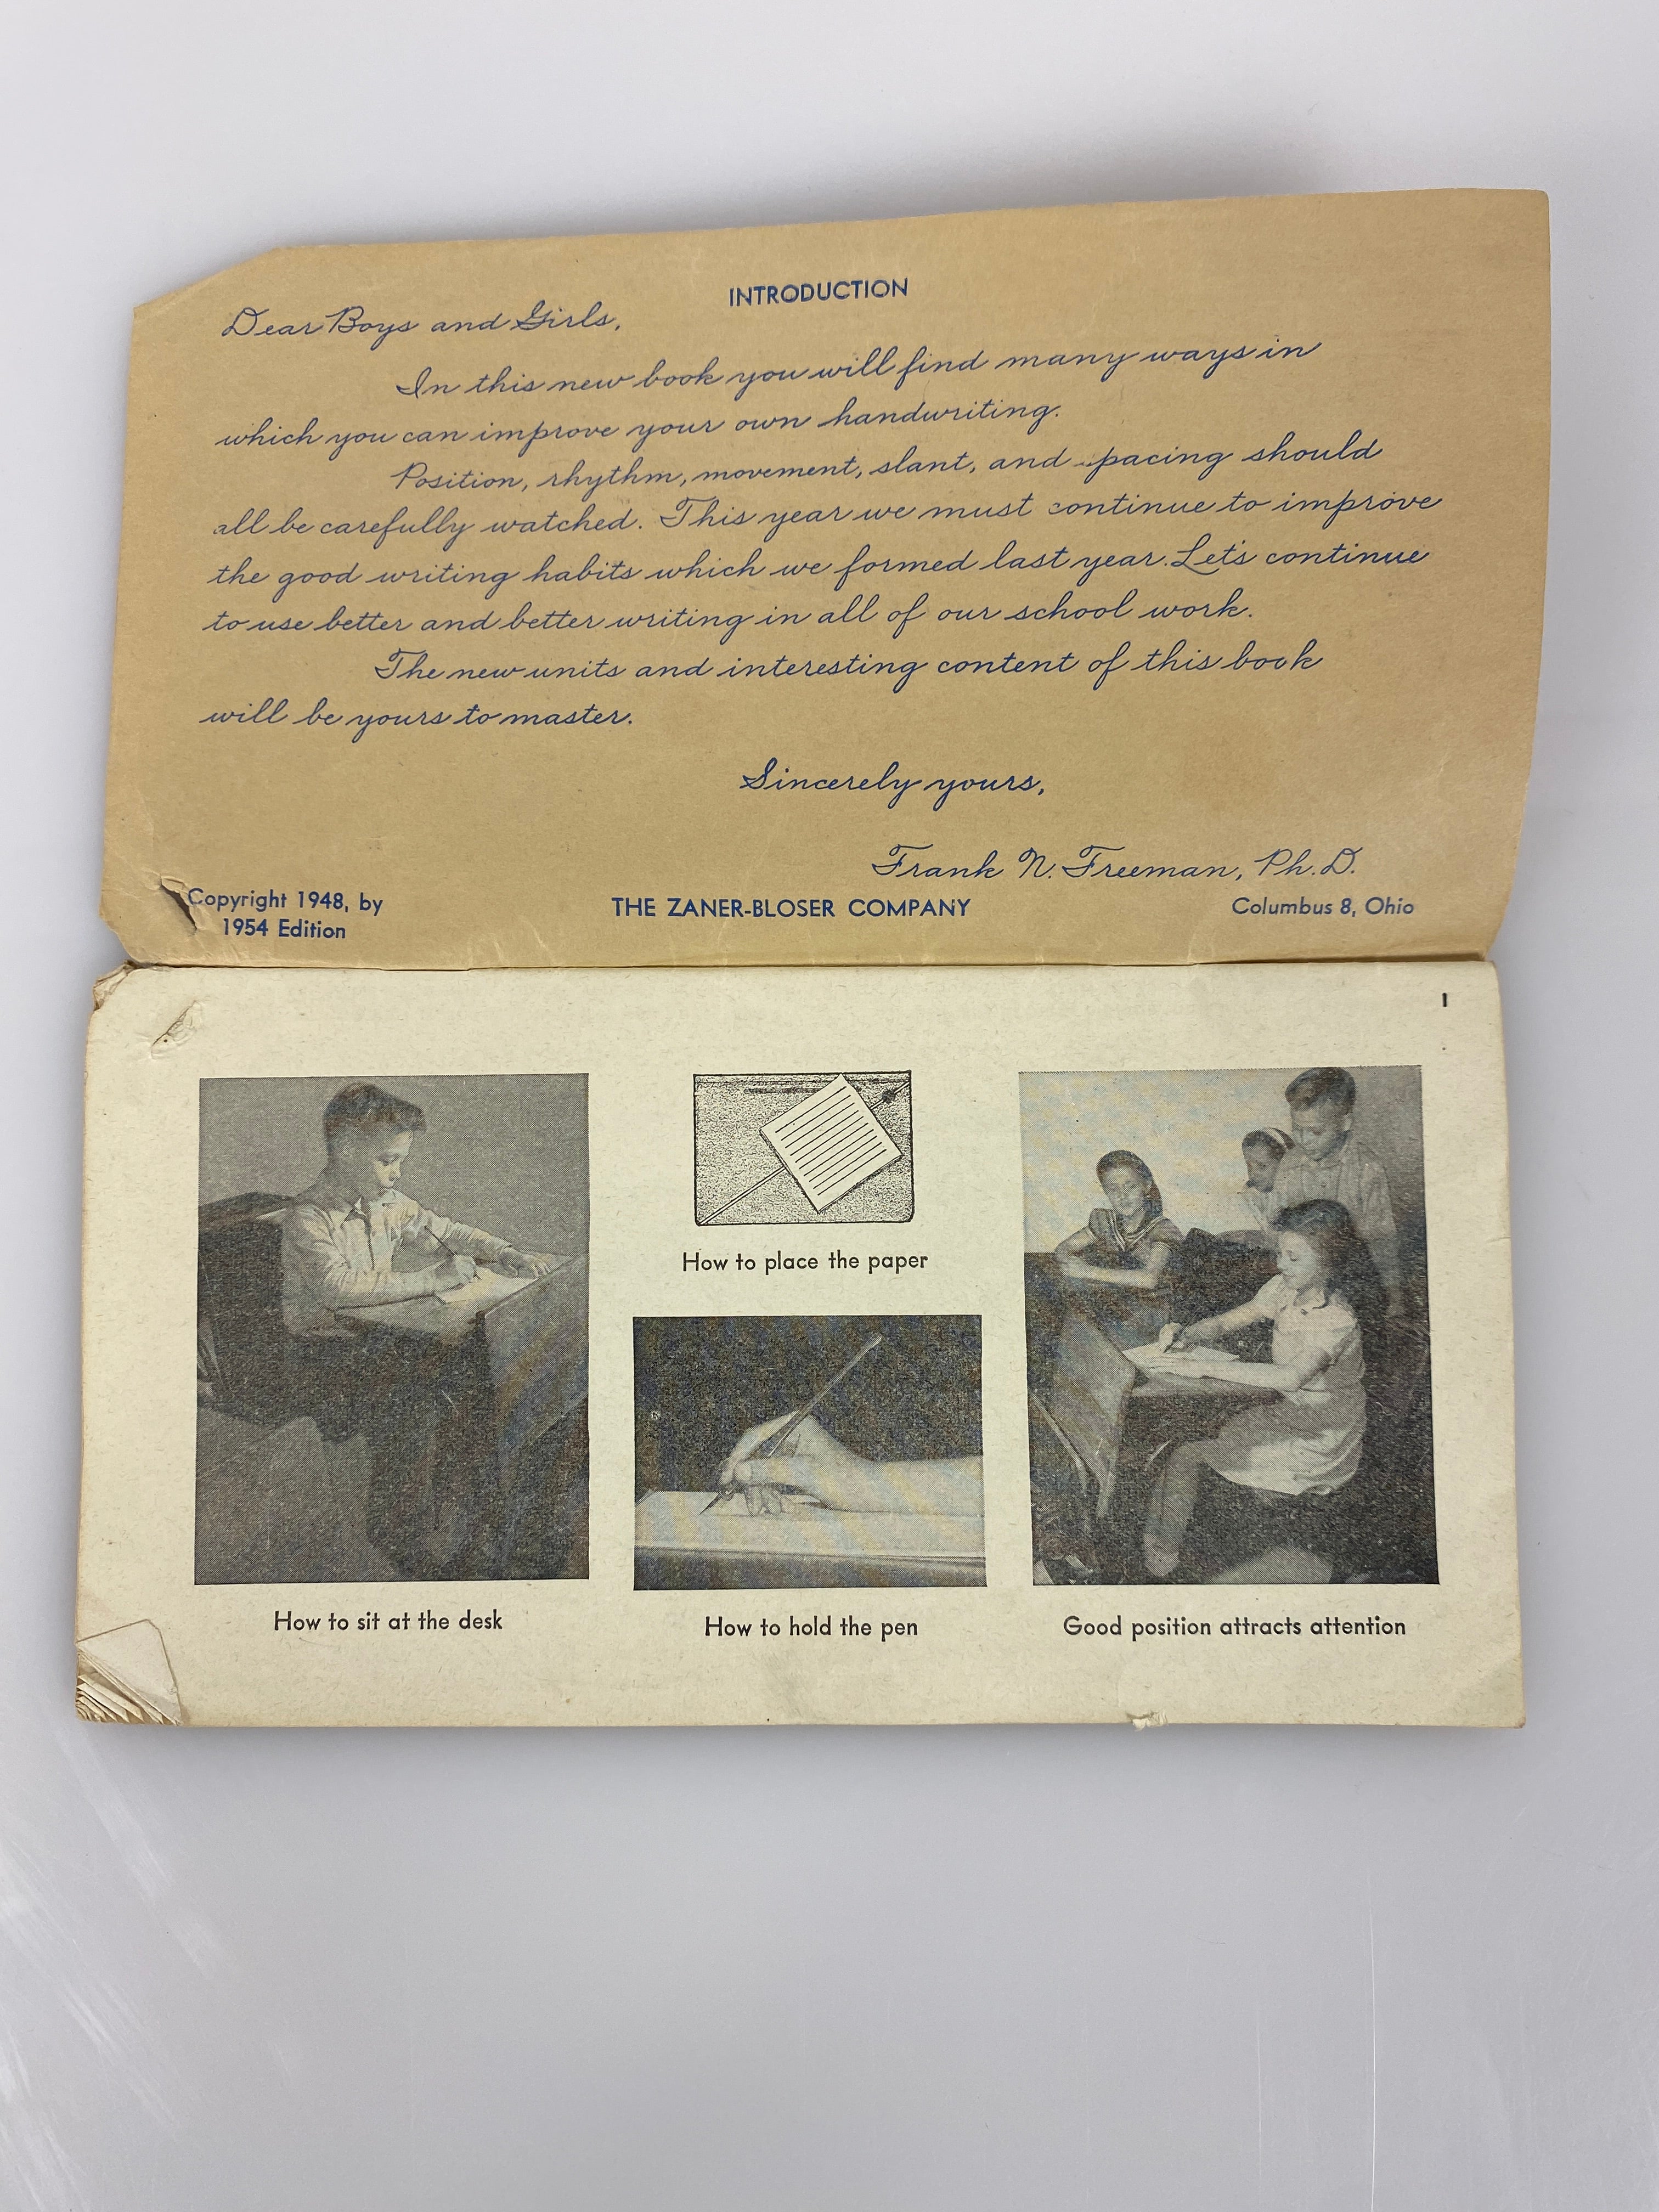 INTRODUCTION
Dear Boys and Girls,
In this new book you will find many ways in
which you can improve your own handwriting.
Position, rhythm, movement, slant, and spacing should
all be carefully watched. This year we must continue to improve
the good writing habits which we formed last year. Let's continue
to use better and better writing in all of our school work.
The new units and interesting content of this book
will be yours to master.
Sincerely yours,
Frank N. Freeman, Ph.D.
Copyright 1948, by
1954 Edition
THE ZANER-BLOSER COMPANY
Columbus 8, Ohio
1
How to place the paper
How to sit at the desk
How to hold the pen
Good position attracts attention